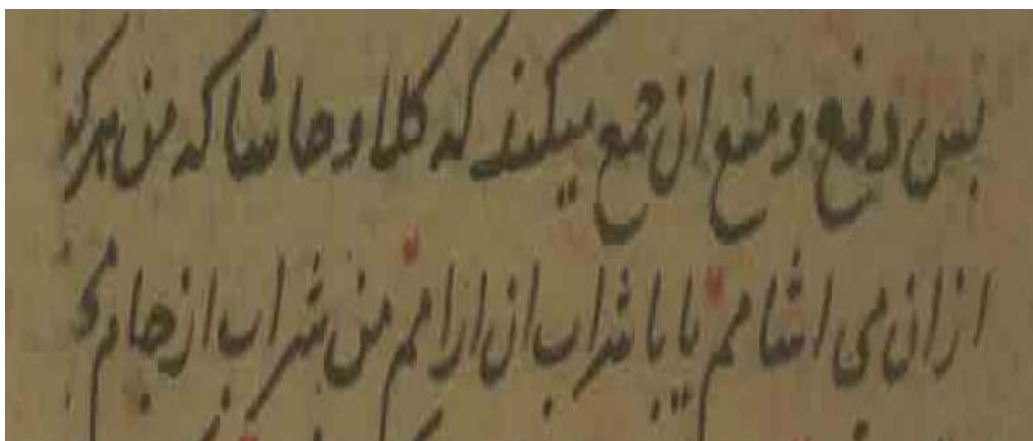 پس دفع و منع ان جمع میکند که کلا و حاشا که من هرکز
از ان می اشامم یا با شراب ان ارامم من شراب از جام